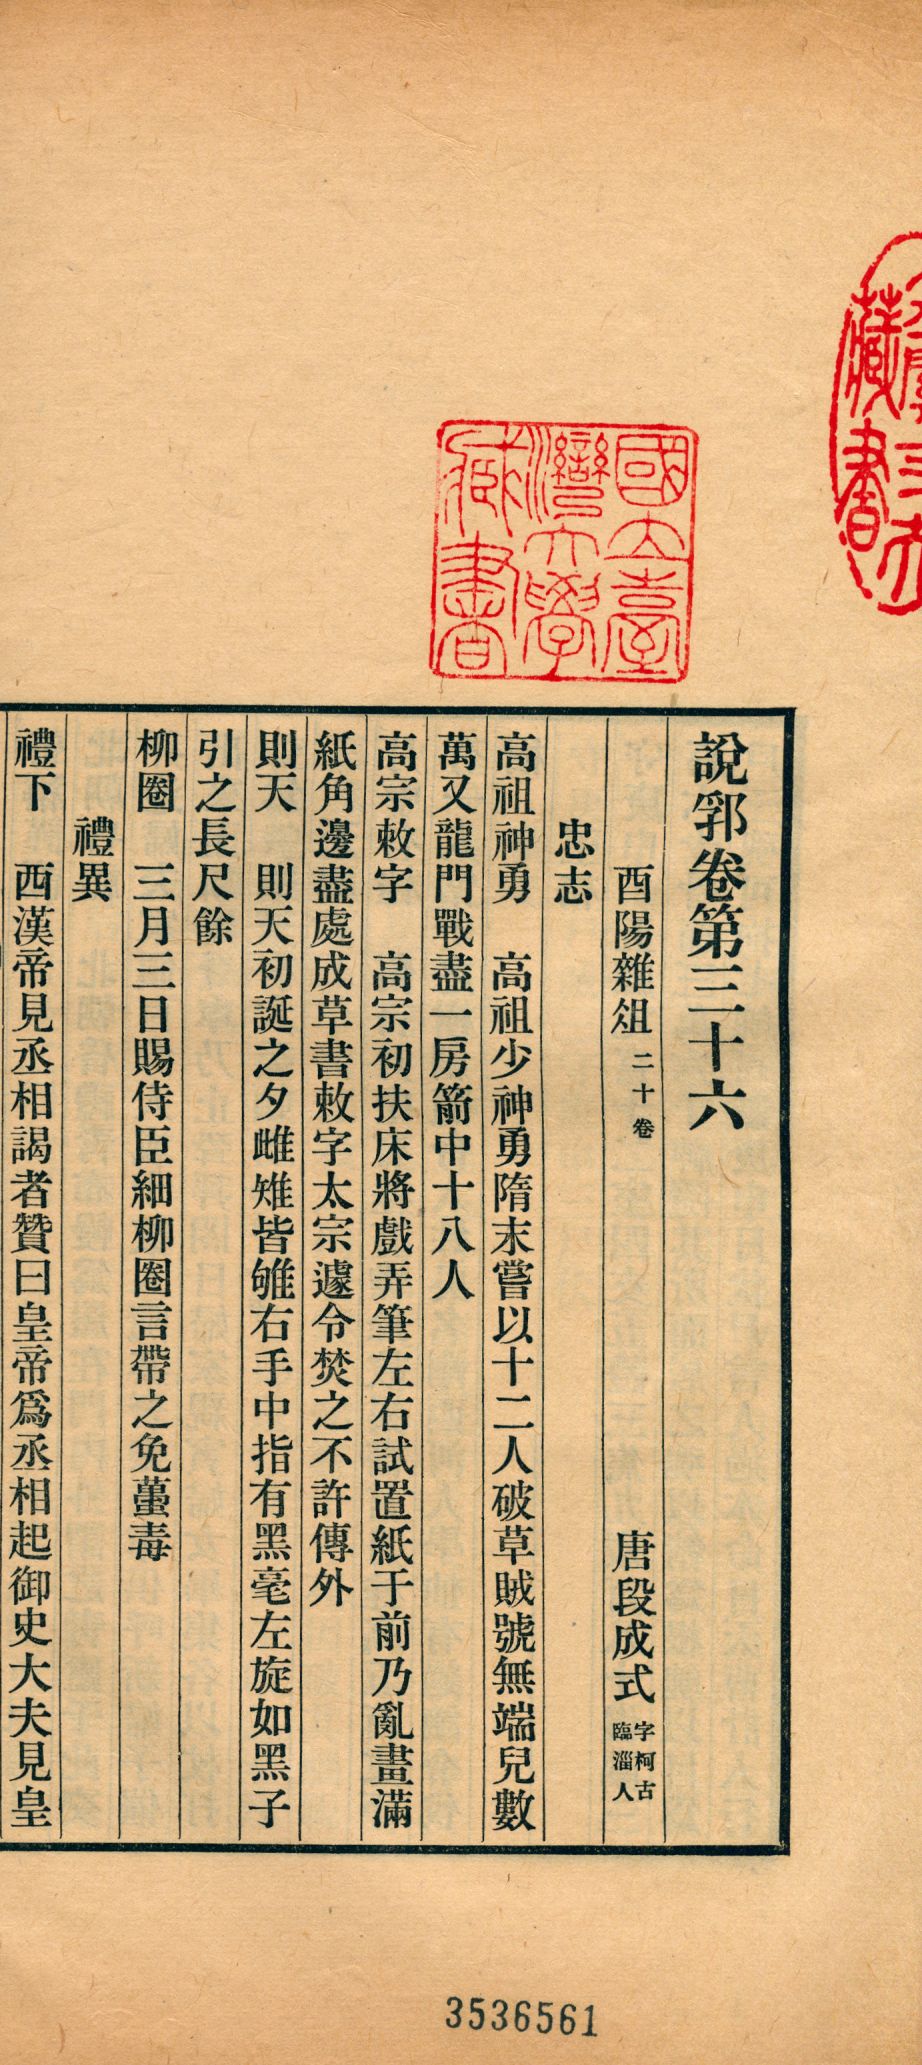 說郛卷第三十六
酉陽雜俎 二十卷 唐段成式 字柯古臨淄人
忠志
高祖神勇 高祖少神勇隋末嘗以十二人破草賊號無端兒數
萬又龍門戰盡一房箭中十八人
高宗敕字 高宗初扶床將戲弄筆左右試置紙于前乃亂畫滿
紙角邊盡處成草書敕字太宗遽令焚之不許傳外
則天 則天初誕之夕雌雉皆雊右手中指有黑毫左旋如黑子
引之長尺餘
柳圈 三月三日賜侍臣細柳圈言帶之免蠆毒
禮異
禮下 西漢帝見丞相謁者贊曰皇帝爲丞相起御史大夫見皇
國立臺
灣大學
藏書
藏書
3536561